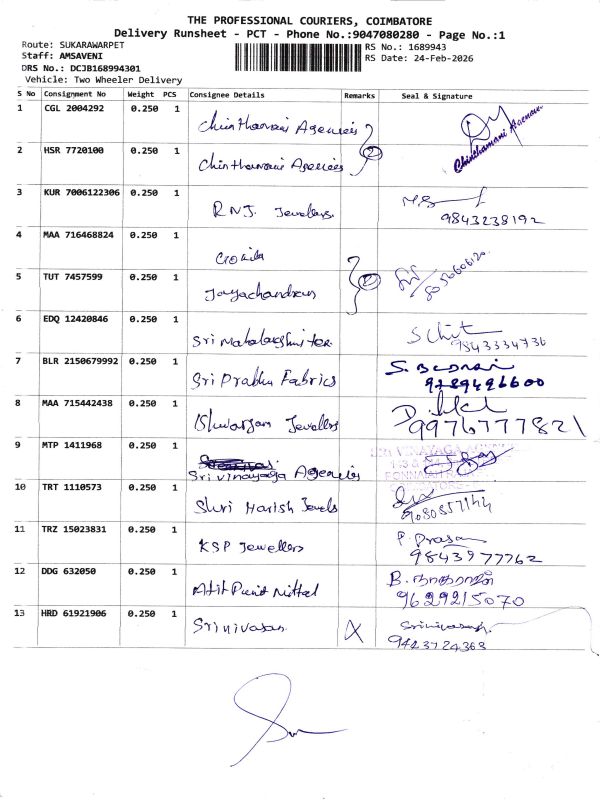 THE PROFESSIONAL COURIERS, COIMBATORE
Delivery Runsheet - PCT - Phone No.:9047080280 - Page No.:1
Route: SUKARAWARPET
RS No.: 1689943
Staff: AMSAVENI
RS Date: 24-Feb-2026
DRS No.: DCJB168994301
Vehicle: Two Wheeler Delivery
S No Consignment No Weight PCS Consignee Details Remarks Seal & Signature
1 CGL 2004292 0.250 1 Chinthamani Agencies Chinthamani Agencies
2 HSR 7720100 0.250 1 Chinthamani Agencies 2
3 KUR 7006122306 0.250 1 R.N.J. Jewellers 9843238192
4 MAA 716468824 0.250 1 Gokila
5 TUT 7457599 0.250 1 Jayachandran 2
6 EDQ 12420846 0.250 1 Sri Mahalakshmi tex 9843334736
7 BLR 2150679992 0.250 1 Sri Prabhu Fabrics
8 MAA 715442438 0.250 1 Ishwarjan Jewellers 9976777821
9 MTP 1411968 0.250 1 Sri Vinayaga Agencies
10 TRT 1110573 0.250 1 Shri Harish Jewels
11 TRZ 15023831 0.250 1 KSP Jewellers P. Prasan 9843977762
12 DDG 632050 0.250 1 B. நாதராஜன் 9629215070
13 HRD 61921906 0.250 1 Srinivasan Srinivasan 9443724363